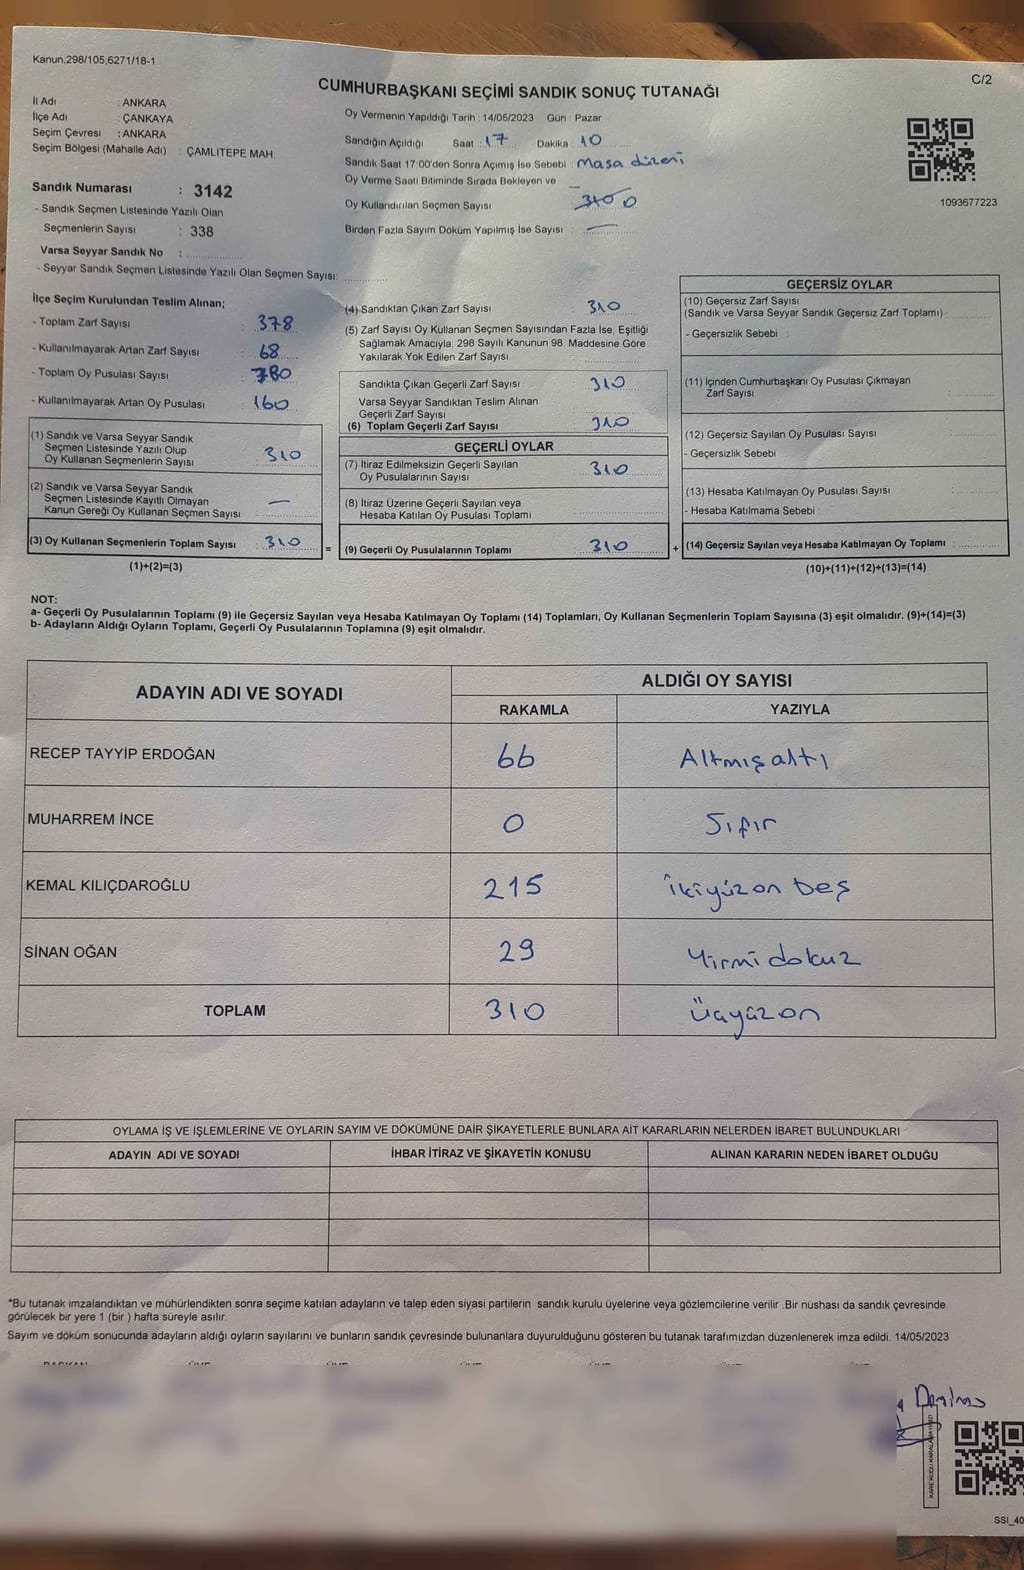 Kanun,298/105;6271/18-1
C/2
CUMHURBAŞKANI SEÇİMİ SANDIK SONUÇ TUTANAĞI
İl Adı : ANKARA
İlçe Adı : ÇANKAYA
Seçim Çevresi : ANKARA
Seçim Bölgesi (Mahalle Adı) : ÇAMLITEPE MAH.
Sandık Numarası : 3142
- Sandık Seçmen Listesinde Yazılı Olan
Seçmenlerin Sayısı : 338
Varsa Seyyar Sandık No :
- Seyyar Sandık Seçmen Listesinde Yazılı Olan Seçmen Sayısı:
Oy Vermenin Yapıldığı Tarih : 14/05/2023 Gün : Pazar
Sandığın Açıldığı Saat : 17 Dakika : 10
Sandık Saat 17:00'den Sonra Açılmış İse Sebebi : Masa düzeni
Oy Verme Saati Bitiminde Sırada Bekleyen ve
Oy Kullandırılan Seçmen Sayısı
Birden Fazla Sayım Döküm Yapılmış İse Sayısı : —
1093677223
İlçe Seçim Kurulundan Teslim Alınan;
- Toplam Zarf Sayısı : 378
- Kullanılmayarak Artan Zarf Sayısı : 68
- Toplam Oy Pusulası Sayısı : 780
- Kullanılmayarak Artan Oy Pusulası : 160
(1) Sandık ve Varsa Seyyar Sandık
Seçmen Listesinde Yazılı Olup
Oy Kullanan Seçmenlerin Sayısı : 310
(2) Sandık ve Varsa Seyyar Sandık
Seçmen Listesinde Kayıtlı Olmayan
Kanun Gereği Oy Kullanan Seçmen Sayısı : —
(3) Oy Kullanan Seçmenlerin Toplam Sayısı : 310
(1)+(2)=(3)
(4) Sandıktan Çıkan Zarf Sayısı : 310
(5) Zarf Sayısı Oy Kullanan Seçmen Sayısından Fazla İse, Eşitliği
Sağlamak Amacıyla; 298 Sayılı Kanunun 98. Maddesine Göre
Yakılarak Yok Edilen Zarf Sayısı
Sandıkta Çıkan Geçerli Zarf Sayısı : 310
Varsa Seyyar Sandıktan Teslim Alınan
Geçerli Zarf Sayısı
(6) Toplam Geçerli Zarf Sayısı : 310
GEÇERLİ OYLAR
(7) İtiraz Edilmeksizin Geçerli Sayılan
Oy Pusulalarının Sayısı : 310
(8) İtiraz Üzerine Geçerli Sayılan veya
Hesaba Katılan Oy Pusulası Toplamı
= (9) Geçerli Oy Pusulalarının Toplamı : 310
GEÇERSİZ OYLAR
(10) Geçersiz Zarf Sayısı
(Sandık ve Varsa Seyyar Sandık Geçersiz Zarf Toplamı) :
- Geçersizlik Sebebi :
(11) İçinden Cumhurbaşkanı Oy Pusulası Çıkmayan
Zarf Sayısı :
(12) Geçersiz Sayılan Oy Pusulası Sayısı :
- Geçersizlik Sebebi :
(13) Hesaba Katılmayan Oy Pusulası Sayısı :
- Hesaba Katılmama Sebebi :
+ (14) Geçersiz Sayılan veya Hesaba Katılmayan Oy Toplamı :
(10)+(11)+(12)+(13)=(14)
NOT:
a- Geçerli Oy Pusulalarının Toplamı (9) ile Geçersiz Sayılan veya Hesaba Katılmayan Oy Toplamı (14) Toplamları, Oy Kullanan Seçmenlerin Toplam Sayısına (3) eşit olmalıdır. (9)+(14)=(3)
b- Adayların Aldığı Oyların Toplamı, Geçerli Oy Pusulalarının Toplamına (9) eşit olmalıdır.
ADAYIN ADI VE SOYADI ALDIĞI OY SAYISI
RAKAMLA YAZIYLA
RECEP TAYYİP ERDOĞAN 66 Altmışaltı
MUHARREM İNCE 0 Sıfır
KEMAL KILIÇDAROĞLU 215 İkiyüzon beş
SİNAN OĞAN 29 Yirmi dokuz
TOPLAM 310 Üçyüzon
OYLAMA İŞ VE İŞLEMLERİNE VE OYLARIN SAYIM VE DÖKÜMÜNE DAİR ŞİKAYETLERLE BUNLARA AİT KARARLARIN NELERDEN İBARET BULUNDUKLARI
ADAYIN ADI VE SOYADI İHBAR İTİRAZ VE ŞİKAYETİN KONUSU ALINAN KARARIN NEDEN İBARET OLDUĞU
*Bu tutanak imzalandıktan ve mühürlendikten sonra seçime katılan adayların ve talep eden siyasi partilerin sandık kurulu üyelerine veya gözlemcilerine verilir .Bir nüshası da sandık çevresinde
görülecek bir yere 1 (bir ) hafta süreyle asılır.
Sayım ve döküm sonucunda adayların aldığı oyların sayılarını ve bunların sandık çevresinde bulunanlara duyurulduğunu gösteren bu tutanak tarafımızdan düzenlenerek imza edildi. 14/05/2023
SSI_40